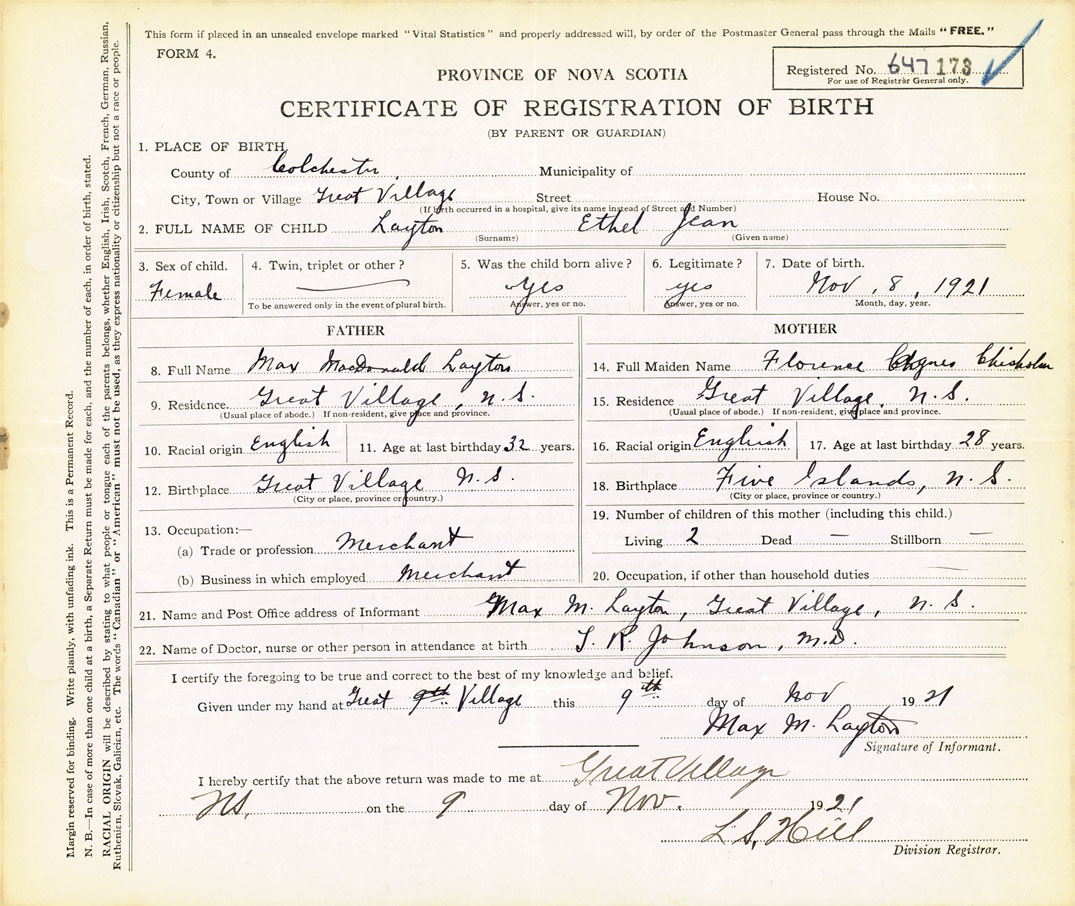 This form if placed in an unsealed envelope marked "Vital Statistics" and properly addressed will, by order of the Postmaster General pass through the Mails "FREE."
FORM 4.
Registered No. 647 173
For use of Registrar General only.
PROVINCE OF NOVA SCOTIA
CERTIFICATE OF REGISTRATION OF BIRTH
(BY PARENT OR GUARDIAN)
1. PLACE OF BIRTH
County of Colchester, Municipality of
City, Town or Village Great Village Street House No.
(If birth occurred in a hospital, give its name instead of Street and Number)
2. FULL NAME OF CHILD Layton Ethel Jean
(Surname) (Given name)
3. Sex of child. 4. Twin, triplet or other? 5. Was the child born alive? 6. Legitimate? 7. Date of birth.
Female Yes yes Nov, 8, 1921
To be answered only in the event of plural birth. Answer, yes or no. Answer, yes or no. Month, day, year.
FATHER
8. Full Name Max MacDonald Layton
9. Residence Great Village, N.S.
(Usual place of abode.) If non-resident, give place and province.
10. Racial origin English 11. Age at last birthday 32 years.
12. Birthplace Great Village N.S.
(City or place, province or country.)
13. Occupation:—
(a) Trade or profession Merchant
(b) Business in which employed Merchant
MOTHER
14. Full Maiden Name Florence Agnes Chisholm
15. Residence Great Village, N.S.
(Usual place of abode.) If non-resident, give place and province.
16. Racial origin English 17. Age at last birthday 28 years.
18. Birthplace Five Islands, N.S.
(City or place, province or country.)
19. Number of children of this mother (including this child.)
Living 2 Dead — Stillborn —
20. Occupation, if other than household duties —
21. Name and Post Office address of Informant Max M. Layton, Great Village, N.S.
22. Name of Doctor, nurse or other person in attendance at birth T. R. Johnson, M.D.
I certify the foregoing to be true and correct to the best of my knowledge and belief.
Given under my hand at Great 9th. Village this 9th day of Nov 1921
Max M. Layton
Signature of Informant.
I hereby certify that the above return was made to me at Great Village
NS, on the 9 day of Nov. 1921
L. S. Hill
Division Registrar.
Margin reserved for binding. Write plainly, with unfading ink. This is a Permanent Record.
N. B.—In case of more than one child at a birth, a Separate Return must be made for each, and the number of each, in order of birth, stated.
RACIAL ORIGIN will be described by stating to what people or tongue each of the parents belongs, whether English, Irish, Scotch, French, German, Russian,
Ruthenian, Slovak, Galician, etc. The words "Canadian" or "American" must not be used, as they express nationality or citizenship but not a race or people.